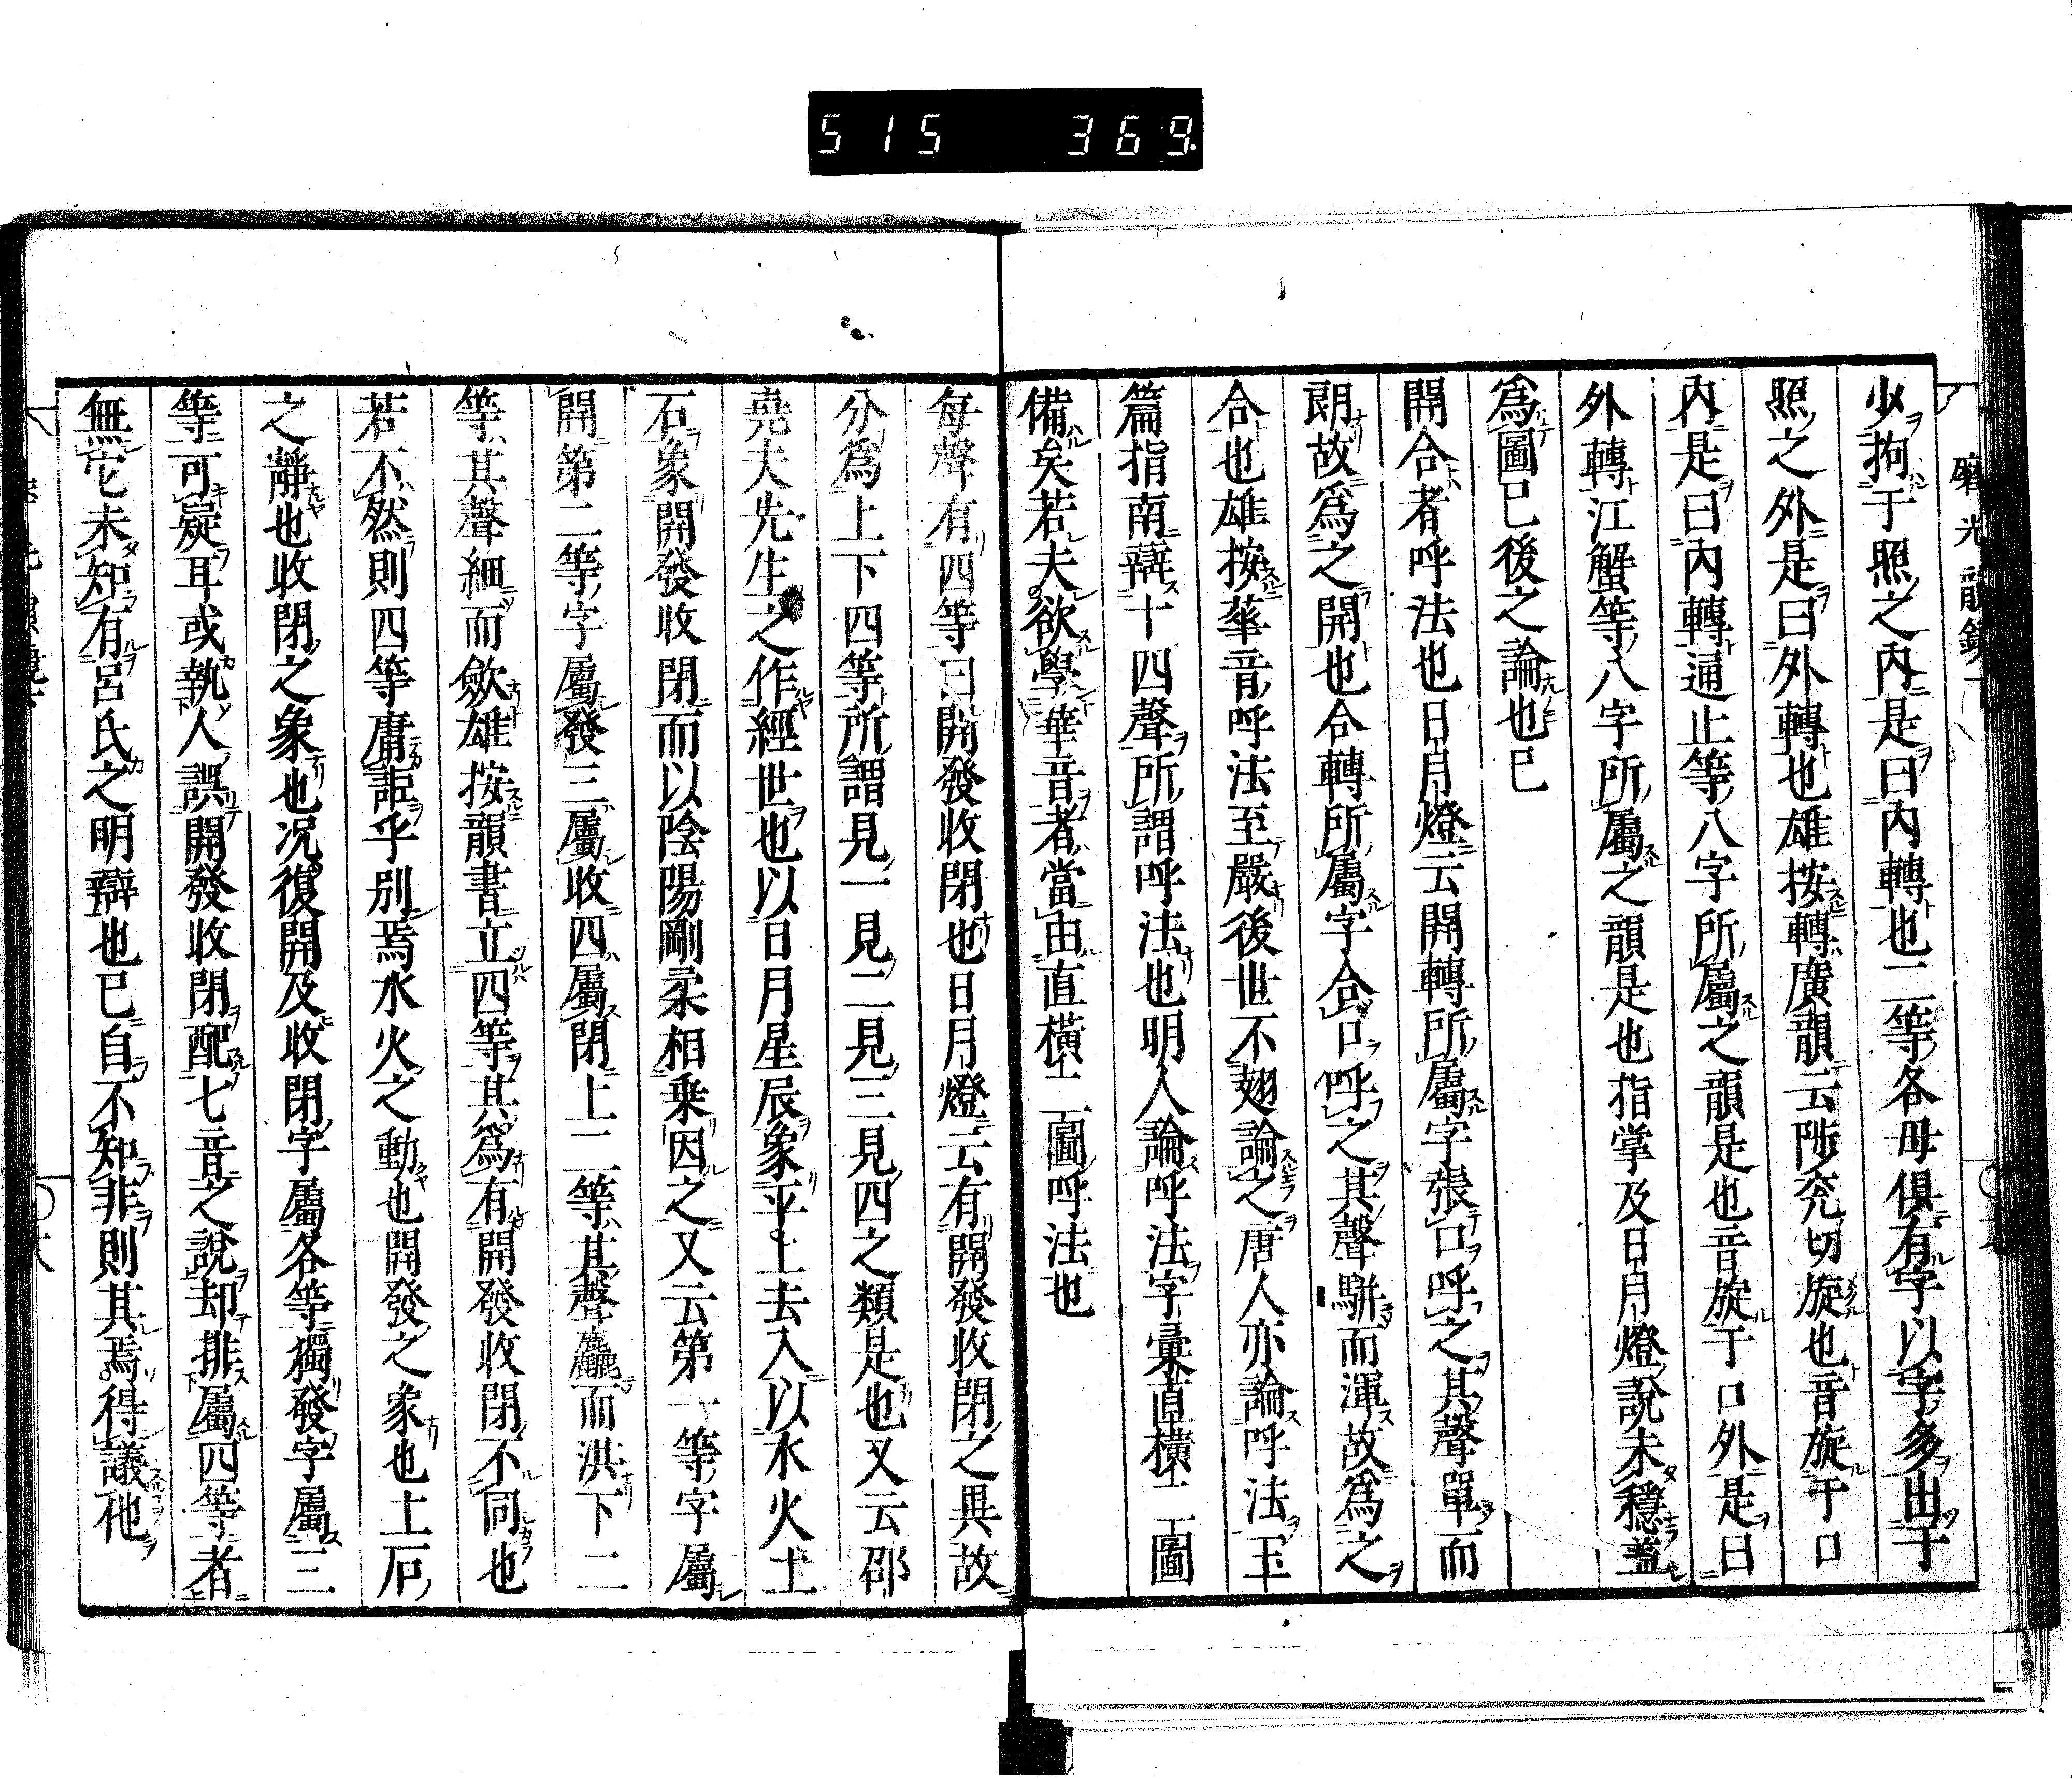 515 369
少拘于照之內是曰內轉也二等各母俱有字以字多出于
照之外是曰外轉也雄按轉廣韻云陟兖切旋也音旋于口
內是曰內轉通止等八字所屬之韻是也音旋于口外是曰
外轉江蟹等八字所屬之韻是也指掌及日月燈說未穩蓋
爲圖已後之論也已
開合者呼法也日月燈云開轉所屬字張口呼之其聲單而
朗故爲之開也合轉所屬字合口呼之其聲駢而渾故爲之
合也雄按華音呼法至嚴後世不翅論之唐人亦論呼法玉
篇指南辯十四聲所謂呼法也明人論呼法字彙直橫二圖
備矣若夫欲學華音者當由直橫二圖呼法也
每聲有四等曰開發收閉也日月燈云有開發收閉之異故
分爲上下四等所謂見一見二見三見四之類是也又云邵
堯夫先生之作經世也以日月星辰象平上去入以水火土
石象開發收閉而以陰陽剛柔相乗因之又云第一等字屬
開第二等字屬發三屬收四屬閉上二等其聲麤而洪下二
等其聲細而歛雄按韻書立四等其爲有開發收閉不同也
若不然則四等庸詎乎別焉水火之動也開發之象也土石
之靜也收閉之象也况復開及收閉字屬各等獨發字屬三
等可疑耳或執人誤開發收閉配七音之說却排屬四等者
無它未知有呂氏之明辯也已自不知非則其焉得議他
磨光韻鏡下